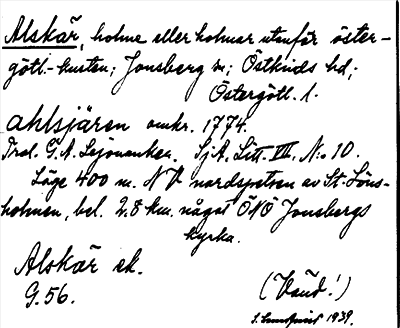 Alskär, holme eller holmar utanför öster-
götl.-kusten; Jonsberg sn; Östkinds hd;
Östergötl. l.
ahlsjären omkr. 1774.
Trol. G. A. Lejonanker. SjA, Litt. VII, N:o 10.
Läge 400 m. NV nordspetsen av St. Löns-
holmen, bel. 2.8 km. något ÖNÖ Jonsbergs
kyrka.
Alskär ek.
G. 56.
(Vaud!)
1939.